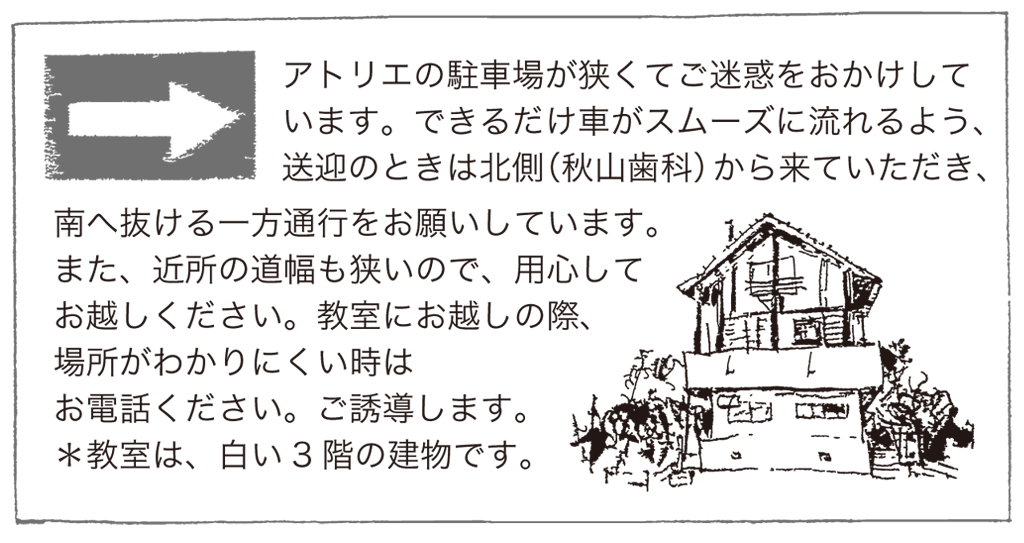 アトリエの駐車場が狭くてご迷惑をおかけして
います。できるだけ車がスムーズに流れるよう、
送迎のときは北側（秋山歯科）から来ていただき、
南へ抜ける一方通行をお願いしています。
また、近所の道幅も狭いので、用心して
お越しください。教室にお越しの際、
場所がわかりにくい時は
お電話ください。ご誘導します。
＊教室は、白い3階の建物です。